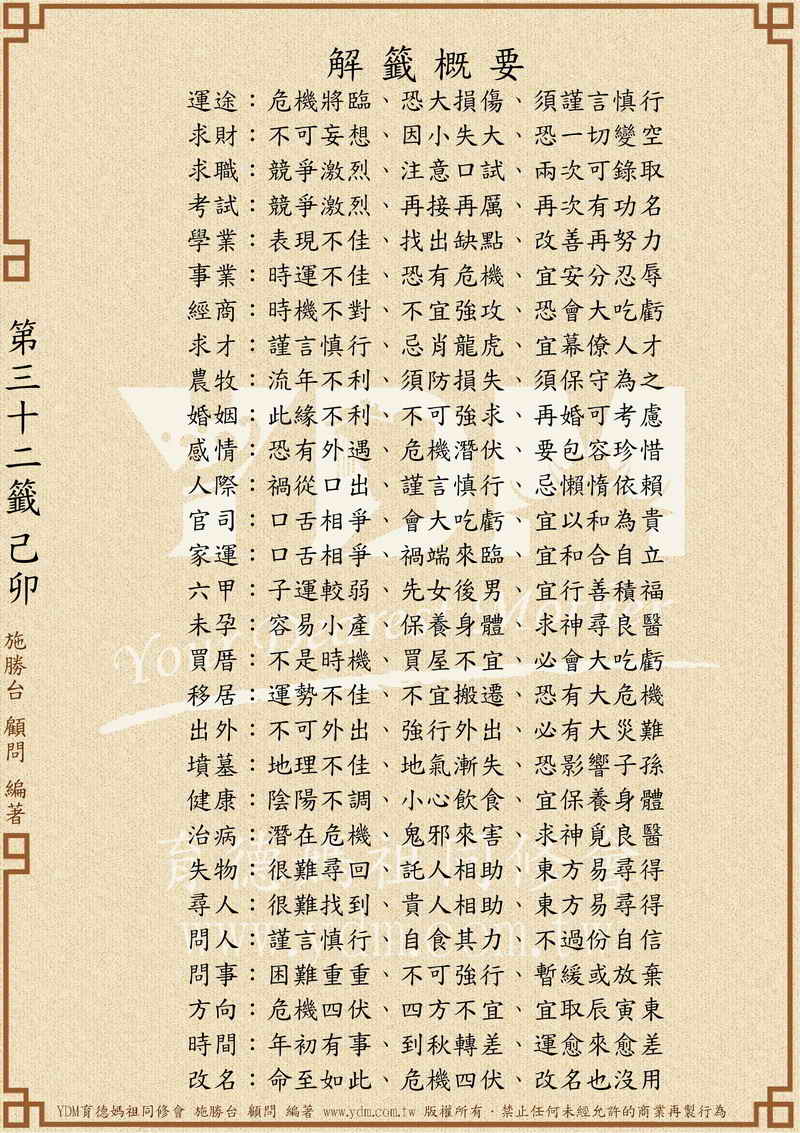 解籤概要
運途：危機將臨、恐大損傷、須謹言慎行
求財：不可妄想、因小失大、恐一切變空
求職：競爭激烈、注意口試、兩次可錄取
考試：競爭激烈、再接再厲、再次有功名
學業：表現不佳、找出缺點、改善再努力
事業：時運不佳、恐有危機、宜安分忍辱
經商：時機不對、不宜強攻、恐會大吃虧
求才：謹言慎行、忌肖龍虎、宜幕僚人才
農牧：流年不利、須防損失、須保守為之
婚姻：此緣不利、不可強求、再婚可考慮
感情：恐有外遇、危機潛伏、要包容珍惜
人際：禍從口出、謹言慎行、忌懶惰依賴
官司：口舌相爭、會大吃虧、宜以和為貴
家運：口舌相爭、禍端來臨、宜和合自立
六甲：子運較弱、先女後男、宜行善積福
未孕：容易小產、保養身體、求神尋良醫
買厝：不是時機、買屋不宜、必會大吃虧
移居：運勢不佳、不宜搬遷、恐有大危機
出外：不可外出、強行外出、必有大災難
墳墓：地理不佳、地氣漸失、恐影響子孫
健康：陰陽不調、小心飲食、宜保養身體
治病：潛在危機、鬼邪來害、求神覓良醫
失物：很難尋回、託人相助、東方易尋得
尋人：很難找到、貴人相助、東方易尋得
問人：謹言慎行、自食其力、不過份自信
問事：困難重重、不可強行、暫緩或放棄
方向：危機四伏、四方不宜、宜取辰寅東
時間：年初有事、到秋轉差、運愈來愈差
改名：命至如此、危機四伏、改名也沒用
第三十二籤 己卯
施勝台 顧問 編著
YDM
Your Dearest Mother
育德媽祖同修會
www.ydm.com.tw
YDM育德媽祖同修會 施勝台 顧問 編著 www.ydm.com.tw 版權所有．禁止任何未經允許的商業再製行為